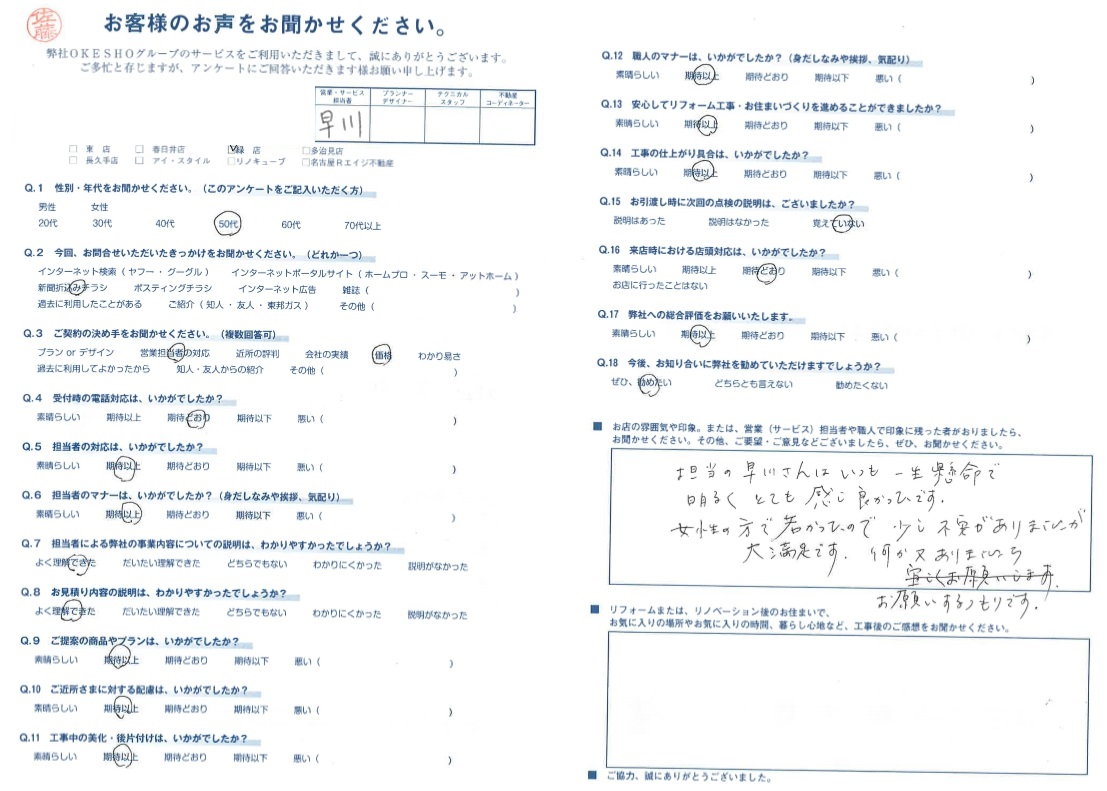 佐藤
お客様のお声をお聞かせください。
弊社ＯＫＥＳＨＯグループのサービスをご利用いただきまして、誠にありがとうございます。
ご多忙と存じますが、アンケートにご回答いただきます様お願い申し上げます。
営業・サービス担当者 プランナーデザイナー テクニカルスタッフ 不動産コーディネーター
早川
□ 東 店 □ 春日井店 ☑ 緑 店 □多治見店
□ 長久手店 □ アイ・スタイル □リノキューブ □名古屋Ｒエイジ不動産
Q.1 性別・年代をお聞かせください。（このアンケートをご記入いただく方）
男性 女性
20代 30代 40代 50代 60代 70代以上
Q.2 今回、お問合せいただいたきっかけをお聞かせください。（どれか一つ）
インターネット検索（ ヤフー ・ グーグル ） インターネットポータルサイト（ ホームプロ ・ スーモ ・ アットホーム ）
新聞折込みチラシ ポスティングチラシ インターネット広告 雑誌（ ）
過去に利用したことがある ご紹介（ 知人 ・ 友人 ・ 東邦ガス ） その他（ ）
Q.3 ご契約の決め手をお聞かせください。（複数回答可）
プラン or デザイン 営業担当者の対応 近所の評判 会社の実績 価格 わかり易さ
過去に利用してよかったから 知人・友人からの紹介 その他（ ）
Q.4 受付時の電話対応は、いかがでしたか？
素晴らしい 期待以上 期待どおり 期待以下 悪い（ ）
Q.5 担当者の対応は、いかがでしたか？
素晴らしい 期待以上 期待どおり 期待以下 悪い（ ）
Q.6 担当者のマナーは、いかがでしたか？（身だしなみや挨拶、気配り）
素晴らしい 期待以上 期待どおり 期待以下 悪い（ ）
Q.7 担当者による弊社の事業内容についての説明は、わかりやすかったでしょうか？
よく理解できた だいたい理解できた どちらでもない わかりにくかった 説明がなかった
Q.8 お見積り内容の説明は、わかりやすかったでしょうか？
よく理解できた だいたい理解できた どちらでもない わかりにくかった 説明がなかった
Q.9 ご提案の商品やプランは、いかがでしたか？
素晴らしい 期待以上 期待どおり 期待以下 悪い（ ）
Q.10 ご近所さまに対する配慮は、いかがでしたか？
素晴らしい 期待以上 期待どおり 期待以下 悪い（ ）
Q.11 工事中の美化・後片付けは、いかがでしたか？
素晴らしい 期待以上 期待どおり 期待以下 悪い（ ）
Q.12 職人のマナーは、いかがでしたか？（身だしなみや挨拶、気配り）
素晴らしい 期待以上 期待どおり 期待以下 悪い（ ）
Q.13 安心してリフォーム工事・お住まいづくりを進めることができましたか？
素晴らしい 期待以上 期待どおり 期待以下 悪い（ ）
Q.14 工事の仕上がり具合は、いかがでしたか？
素晴らしい 期待以上 期待どおり 期待以下 悪い（ ）
Q.15 お引渡し時に次回の点検の説明は、ございましたか？
説明はあった 説明はなかった 覚えていない
Q.16 来店時における店頭対応は、いかがでしたか？
素晴らしい 期待以上 期待どおり 期待以下 悪い（ ）
お店に行ったことはない
Q.17 弊社への総合評価をお願いいたします。
素晴らしい 期待以上 期待どおり 期待以下 悪い（ ）
Q.18 今後、お知り合いに弊社を勧めていただけますでしょうか？
ぜひ、勧めたい どちらとも言えない 勧めたくない
■ お店の雰囲気や印象。または、営業（サービス）担当者や職人で印象に残った者がおりましたら、
お聞かせください。その他、ご要望・ご意見などございましたら、ぜひ、お聞かせください。
担当の早川さんはいつも一生懸命で
明るくとても感じ良かったです。
女性の方で若かったので少し不安がありましたが
大満足です。何か又ありましたら
宜しくお願いします。
お願いするつもりです。
■ リフォームまたは、リノベーション後のお住まいで、
お気に入りの場所やお気に入りの時間、暮らし心地など、工事後のご感想をお聞かせください。
■ ご協力、誠にありがとうございました。